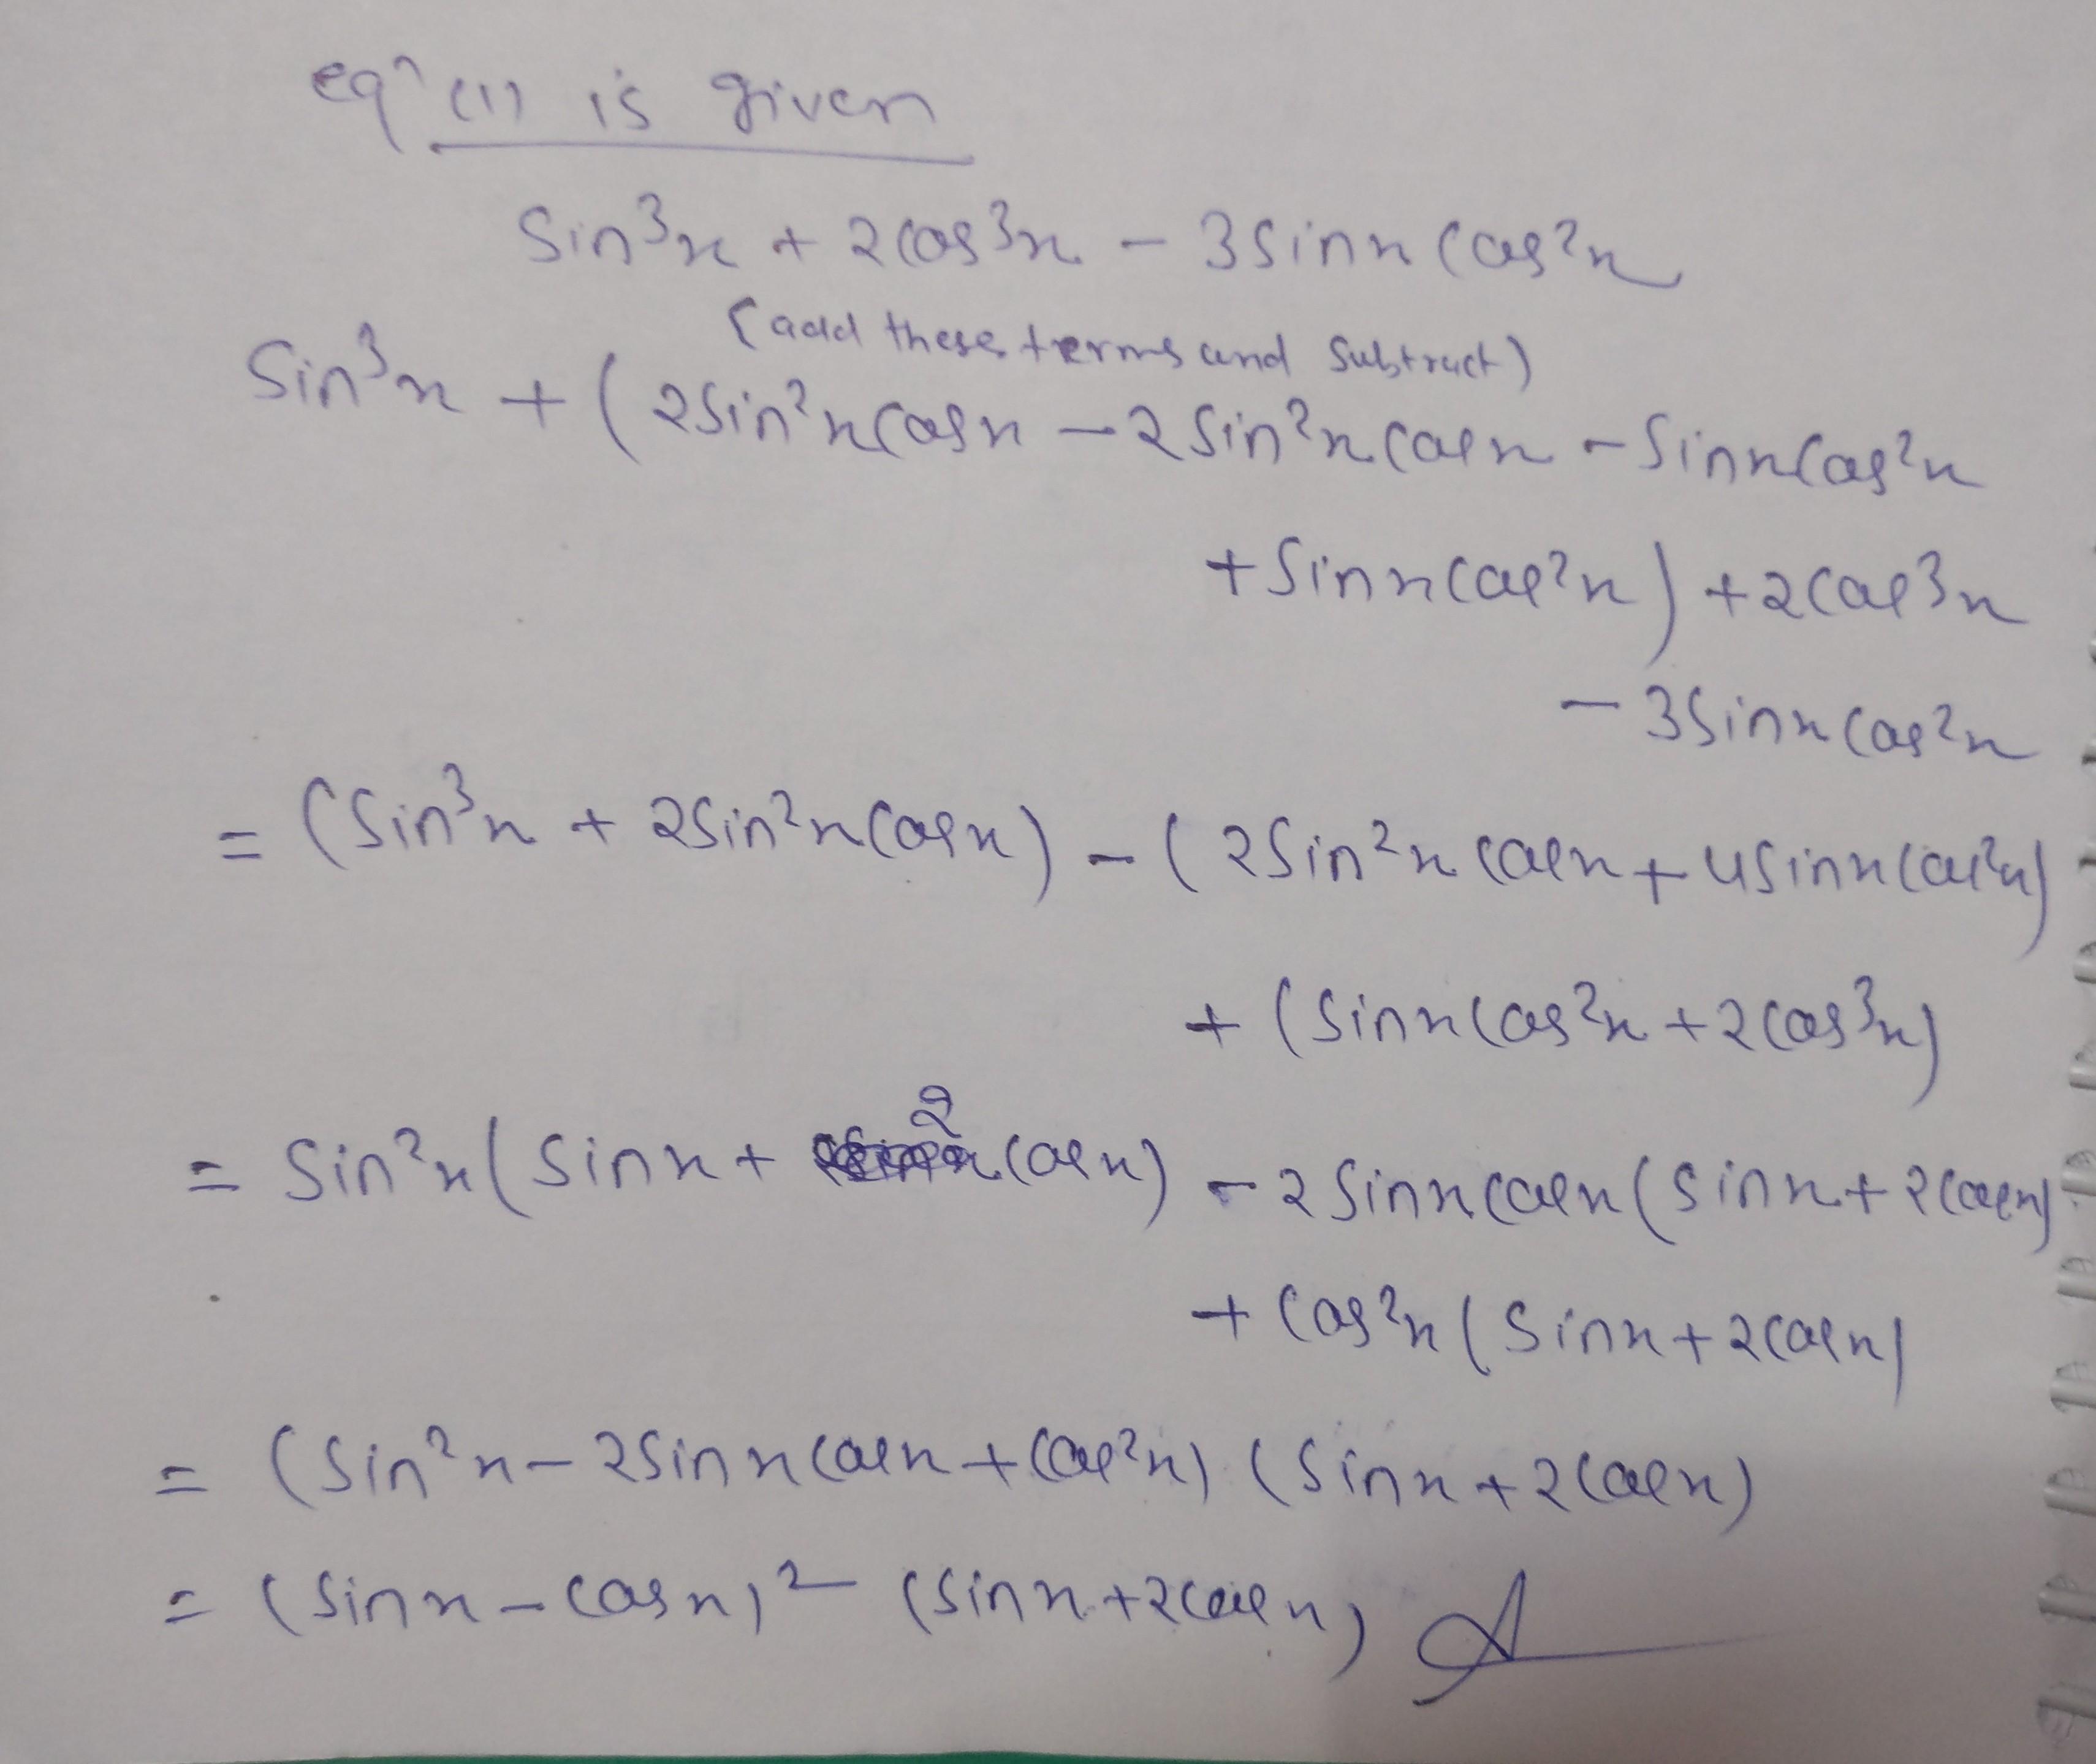 eqⁿ (1) is given
Sin³x + 2cos³x - 3Sinx cos²x
(add these terms and Subtract)
Sin³x + (2Sin²x cosx - 2Sin²x cosx - Sinx cos²x
+ Sinx cos²x) + 2cos³x
- 3Sinx cos²x
= (Sin³x + 2Sin²x cosx) - (2Sin²x cosx + 4Sinx cos²x)
+ (Sinx cos²x + 2cos³x)
= Sin²x (Sinx + 2cosx) - 2Sinx cosx (Sinx + 2cosx)
+ Cos²x (Sinx + 2cosx)
= (Sin²x - 2Sinx cosx + cos²x) (Sinx + 2cosx)
= (Sinx - cosx)² (Sinx + 2cosx)